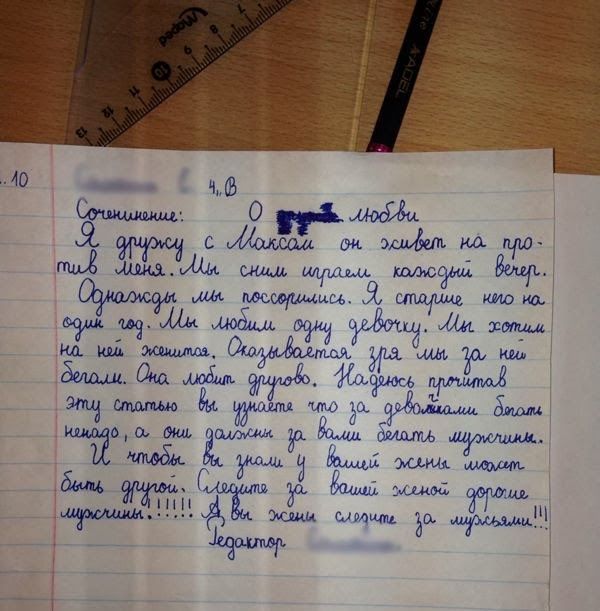 Maped
7
8
9
10
11
12
13
ADEL
.. 10
4 „В
Сочининение: О любви
Я дружу с Максом он живет на про-
тив меня. Мы сним играем каждый вечер.
Однажды мы поссорились. Я старше него на
один год. Мы любим одну девочку. Мы хотим
на ней женится. Оказывается зря мы за ней
бегали. Она любит другово. Надеюсь прочитав
эту статью вы узнаете что за девочками бегать
ненадо, а они должны за вами бегать мужчины.
И чтобы вы знали у вашей жены может
быть другой. Следите за вашей женой дорогие
мужчины!!!!!! А вы жены следите за мужьями!!!
Редактор